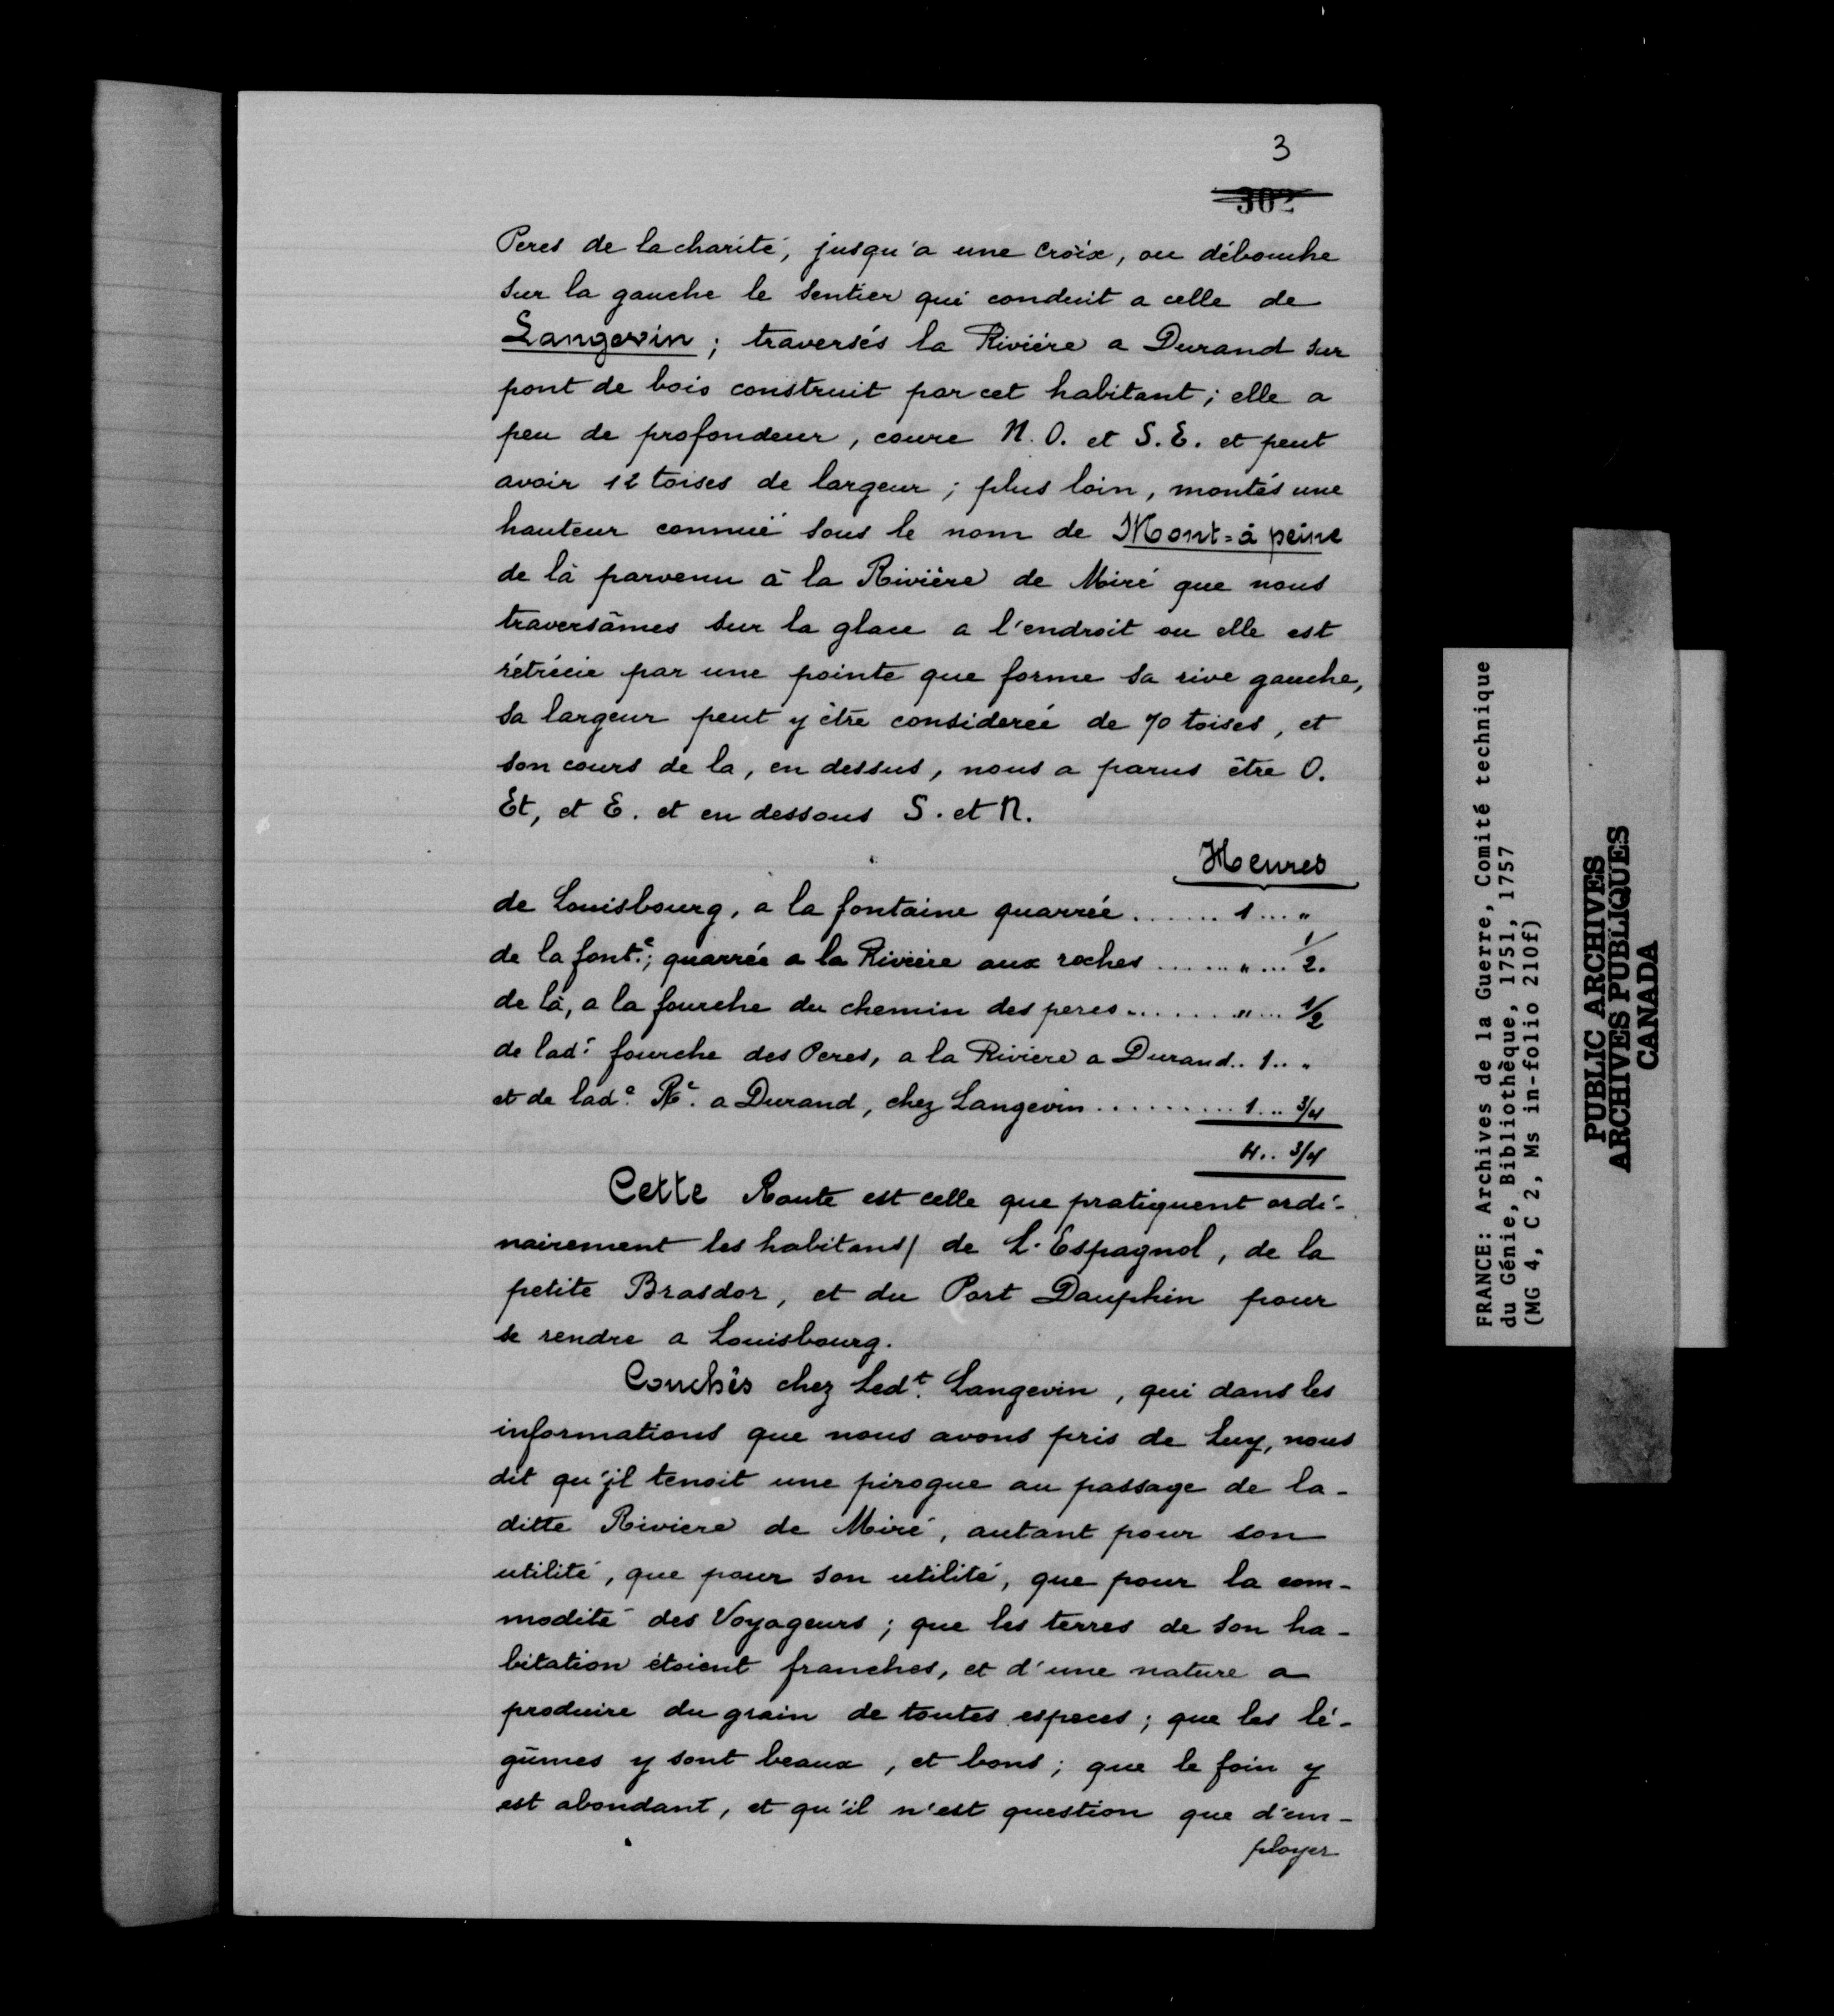 3
302
Peres de la charité, jusqu'a une Croix, ou débouche
sur la gauche le sentier qui conduit a celle de
Langevin ; traversés la Riviére a Durand sur
pont de bois construit par cet habitant ; elle a
peu de profondeur, coure N. O. et S. E. et peut
avoir 12 toises de largeur ; plus loin, montés une
hauteur connuë sous le nom de Mont=à peine
de là parvenu à la Rivière de Miré que nous
traversâmes sur la glace a l'endroit ou elle est
rétrécie par une pointe que forme sa rive gauche,
sa largeur peut y être considereé de 70 toises, et
son cours de la, en dessus, nous a parus être O.
Et, et E. et en dessous S. et N.
Heures
de Louisbourg, a la fontaine quarrée....... 1 .... "
de la font.e; quarrée a la Riviere aux roches ...... " ... 1/2.
de là, a la fourche du chemin des peres....... " ... 1/2
de lad.e fourche des Peres, a la Riviere a Durand.. 1.. "
et de lad.e Re. a Durand, chez Langevin.......... 1... 3/4
4.. 3/4
Cette Route est celle que pratiquent ordi-
nairement les habitans/ de L'Espagnol, de la
petite Brasdor, et du Port Dauphin pour
se rendre a Louisbourg.
Couchés chez Led.t Langevin, qui dans les
informations que nous avons pris de Luy, nous
dit qu'jl tenoit une pirogue au passage de la-
ditte Riviere de Miré, autant pour son
utilité, que pour son utilité, que pour la com-
modité des Voyageurs ; que les terres de son ha-
bitation étoient franches, et d'une nature a
produire du grain de toutes especes ; que les lé-
gûmes y sont beaux, et bons ; que le foin y
est abondant, et qu'il n'est question que d'em-
ployer
FRANCE: Archives de la Guerre, Comité technique
du Génie, Bibliothèque, 1751, 1757
(MG 4, C 2, Ms in-folio 210f)
PUBLIC ARCHIVES
ARCHIVES PUBLIQUES
CANADA